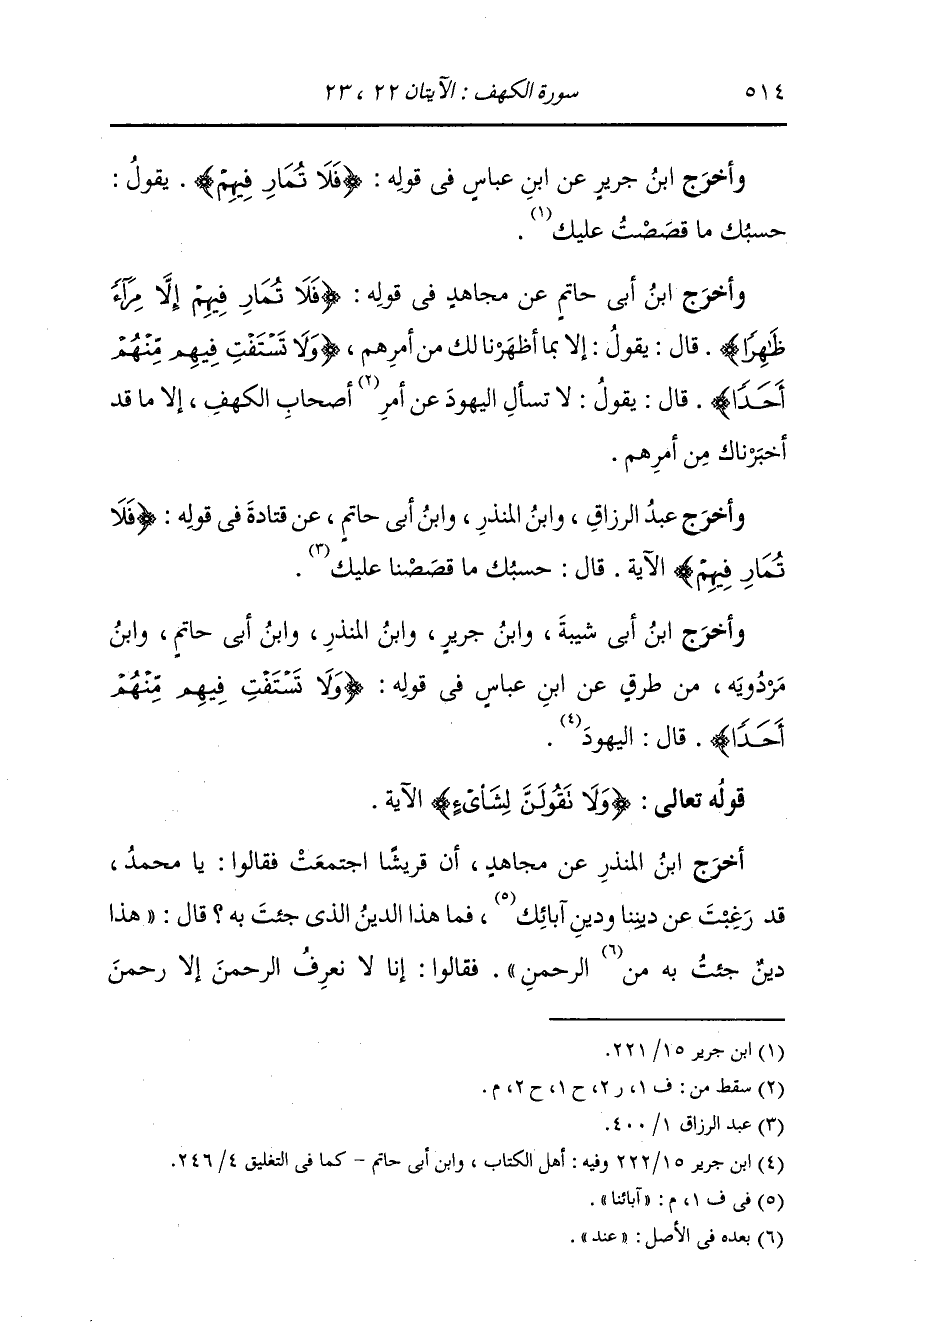 ٥١٤
سورة الكهف : الآيتان ٢٢ ، ٢٣
وأخرَج ابنُ جريرٍ عن ابنِ عباسٍ فى قولِه : ﴿فَلَا تُمَارِ فِيهِمْ﴾ . يقولُ :
حسبُك ما قصَصْتُ عليك(١) .
وأخرَج ابنُ أبى حاتمٍ عن مجاهدٍ فى قولِه : ﴿فَلَا تُمَارِ فِيهِمْ إِلَّا مِرَآءً
ظَٰهِرًا﴾ . قال : يقولُ : إلا بما أظهَرْنا لك من أمرِهم ، ﴿وَلَا تَسْتَفْتِ فِيهِم مِّنْهُمْ
أَحَدًا﴾ . قال : يقولُ : لا تسألِ اليهودَ عن أمرِ(٢) أصحابِ الكهفِ ، إلا ما قد
أخبَرْناك مِن أمرِهم .
وأخرَج عبدُ الرزاقِ ، وابنُ المنذرِ ، وابنُ أبى حاتمٍ ، عن قتادةَ فى قولِه : ﴿فَلَا
تُمَارِ فِيهِمْ﴾ الآية . قال : حسبُك ما قصَصْنا عليك(٣) .
وأخرَج ابنُ أبى شيبةَ ، وابنُ جريرٍ ، وابنُ المنذرِ ، وابنُ أبى حاتمٍ ، وابنُ
مَرْدُويَه ، من طرقٍ عن ابنِ عباسٍ فى قولِه : ﴿وَلَا تَسْتَفْتِ فِيهِم مِّنْهُمْ
أَحَدًا﴾ . قال : اليهودَ(٤) .
قولُه تعالى : ﴿وَلَا نَقُولَنَّ لِشَاْىْءٍ﴾ الآية .
أخرَج ابنُ المنذرِ عن مجاهدٍ ، أن قريشًا اجتمعَتْ فقالوا : يا محمدُ ،
قد رَغِبْتَ عن دينِنا ودينِ آبائِك(٥) ، فما هذا الدينُ الذى جئتَ به ؟ قال : « هذا
دينٌ جئتُ به من(٦) الرحمنِ » . فقالوا : إنا لا نعرِفُ الرحمنَ إلا رحمنَ
(١) ابن جرير ١٥/ ٢٢١.
(٢) سقط من : ف ١، ر ٢، ح ١، ح ٢، م .
(٣) عبد الرزاق ١/ ٤٠٠.
(٤) ابن جرير ٢٢٢/١٥ وفيه : أهل الكتاب ، وابن أبى حاتم - كما فى التغليق ٤/ ٢٤٦.
(٥) فى ف ١، م : «آبائنا» .
(٦) بعده فى الأصل : «عند» .